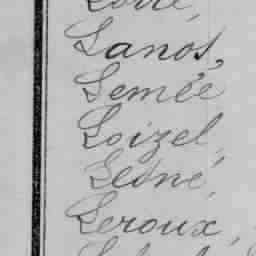 Lanos,
Lemée
Loizel,
Lesné,
Leroux,